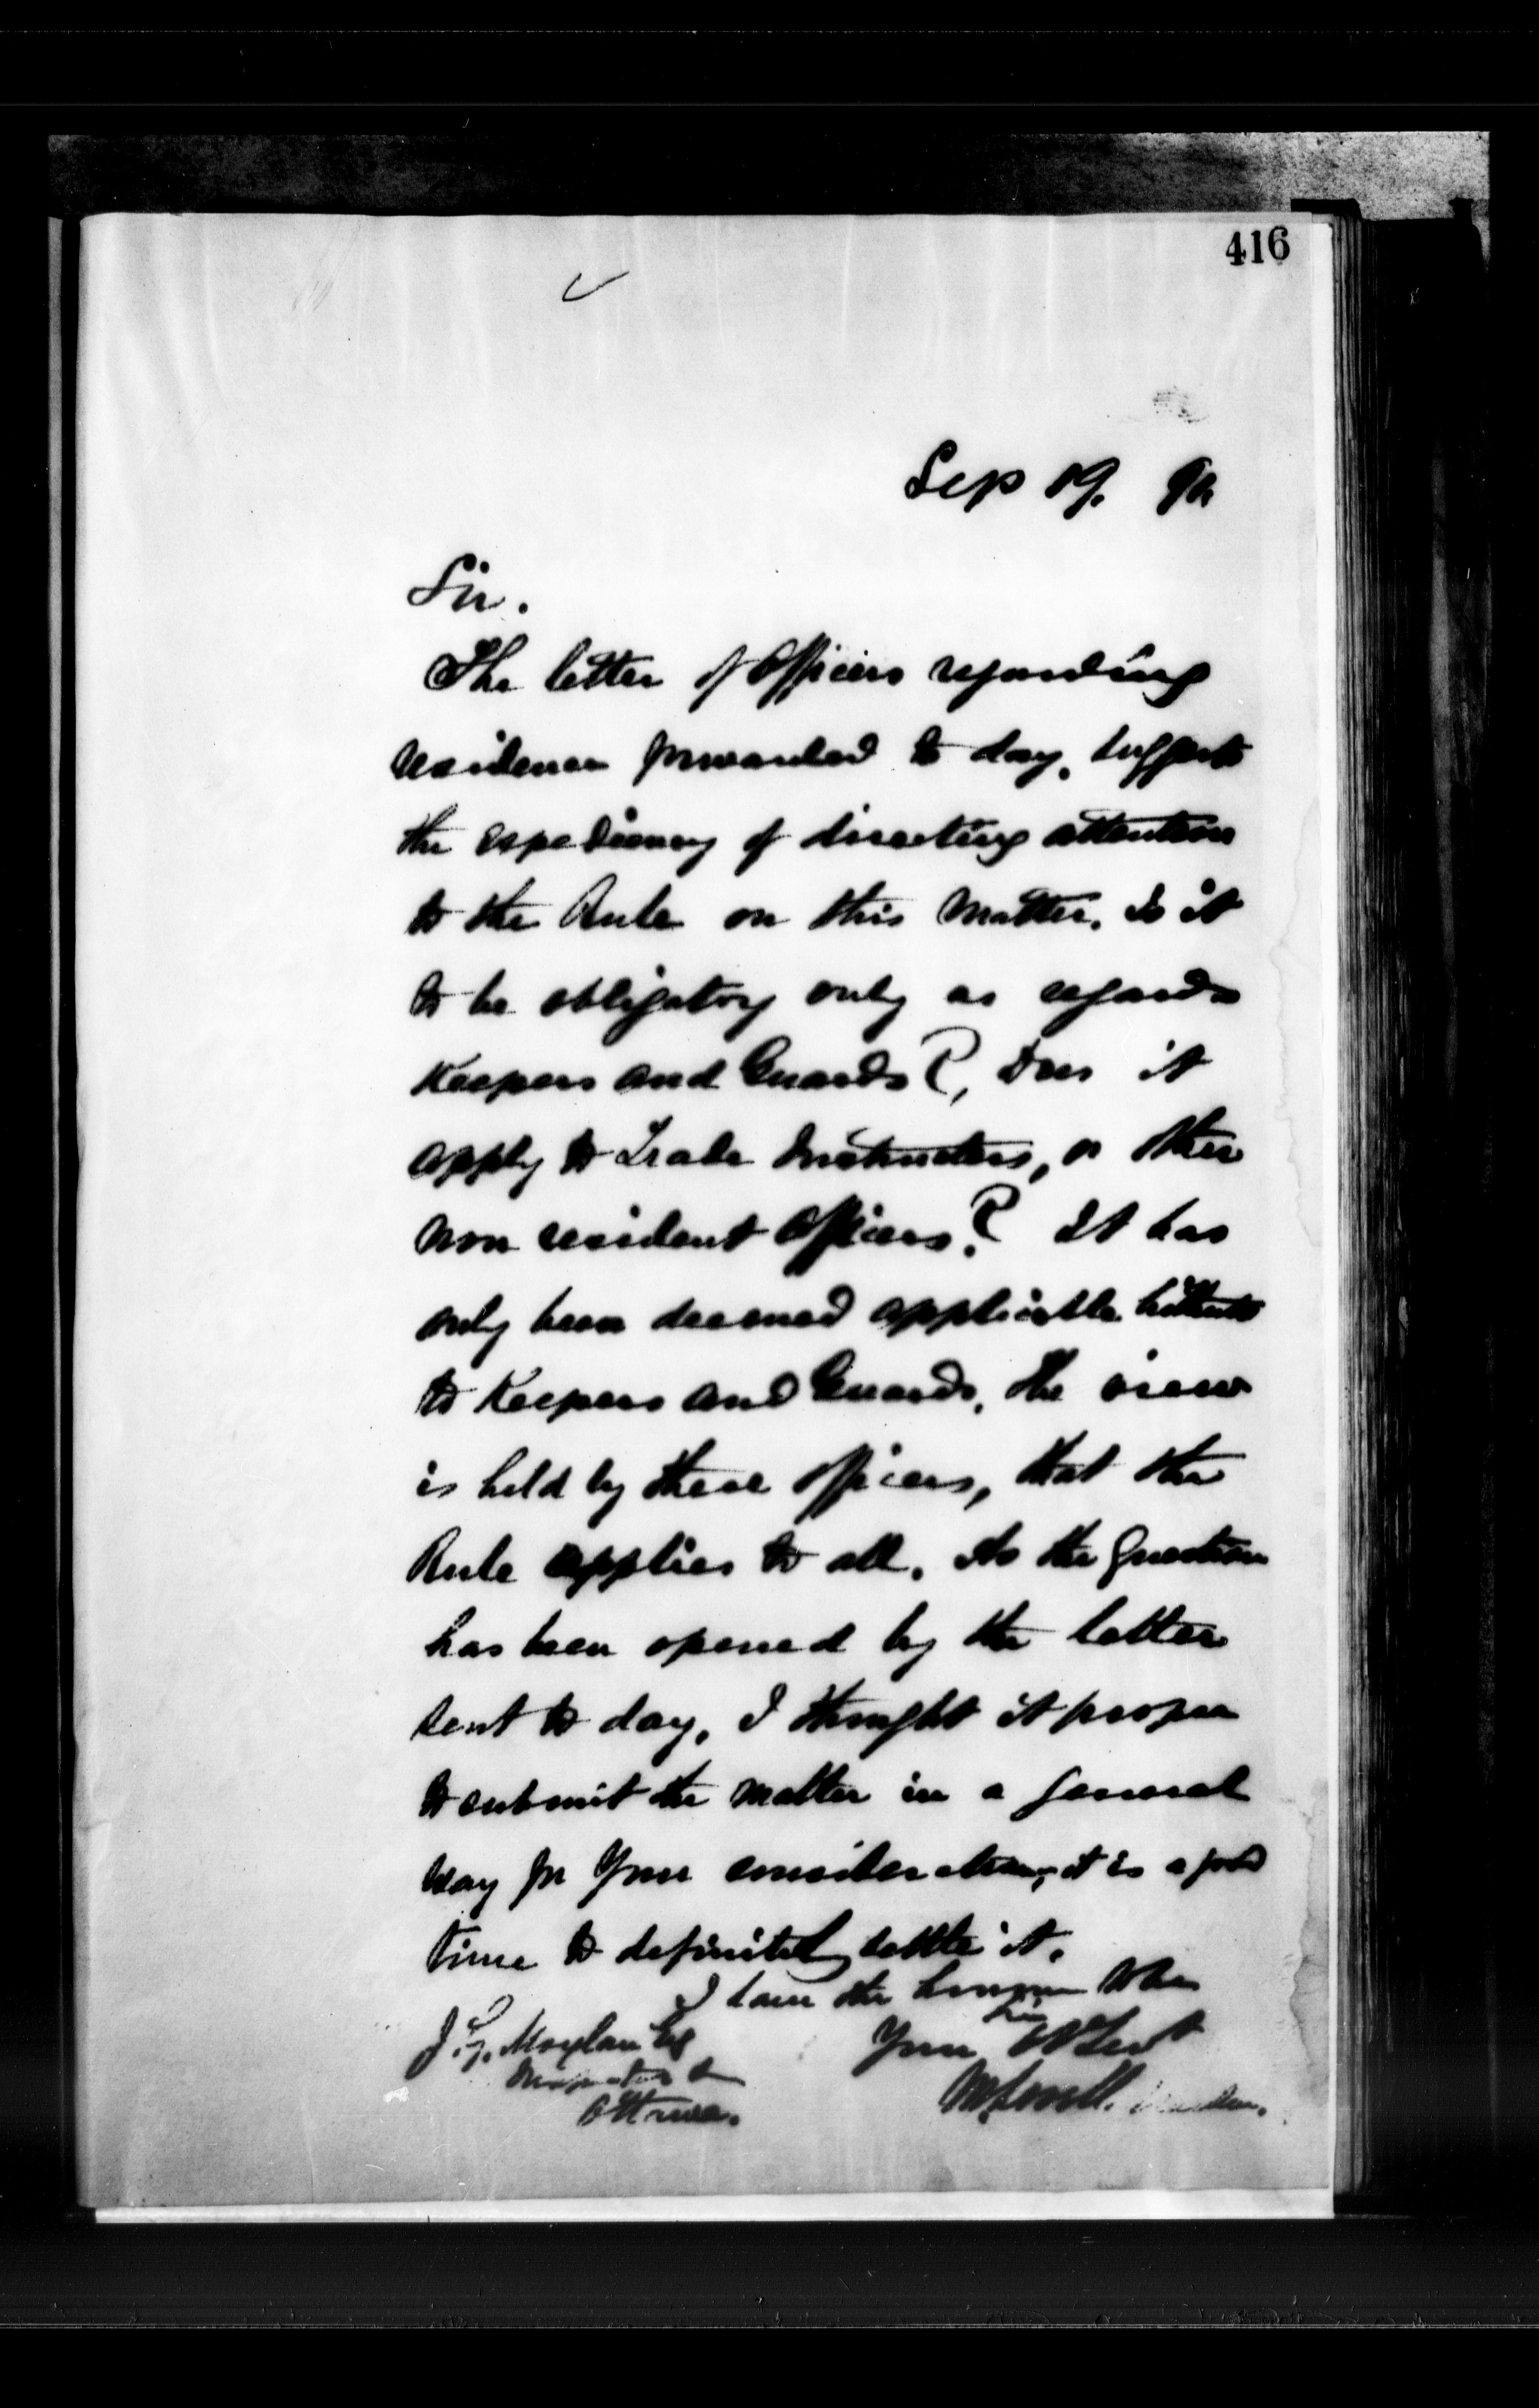 416
Sep 19. 90
Sir.
The letter of Officers regarding
residence forwarded to day, suggests
the expediency of directing attention
to the Rule on this matter. Is it
to be obligatory only as regards
Keepers and Guards?, Does it
apply to Trade Instructors, or other
non resident Officers? It has
only been deemed applicable hitherto
to Keepers and Guards, the view
is held by these officers, that the
Rule applies to all. As the Question
has been opened by the letter
sent to day, I thought it proper
to submit the matter in a general
way for your consideration, it is a good
time to definitely settle it.
I have the honour to be
Sir
J. G. Moylan Esq
Your Obt Servt
Inspector &c
Ottawa.
Warden.